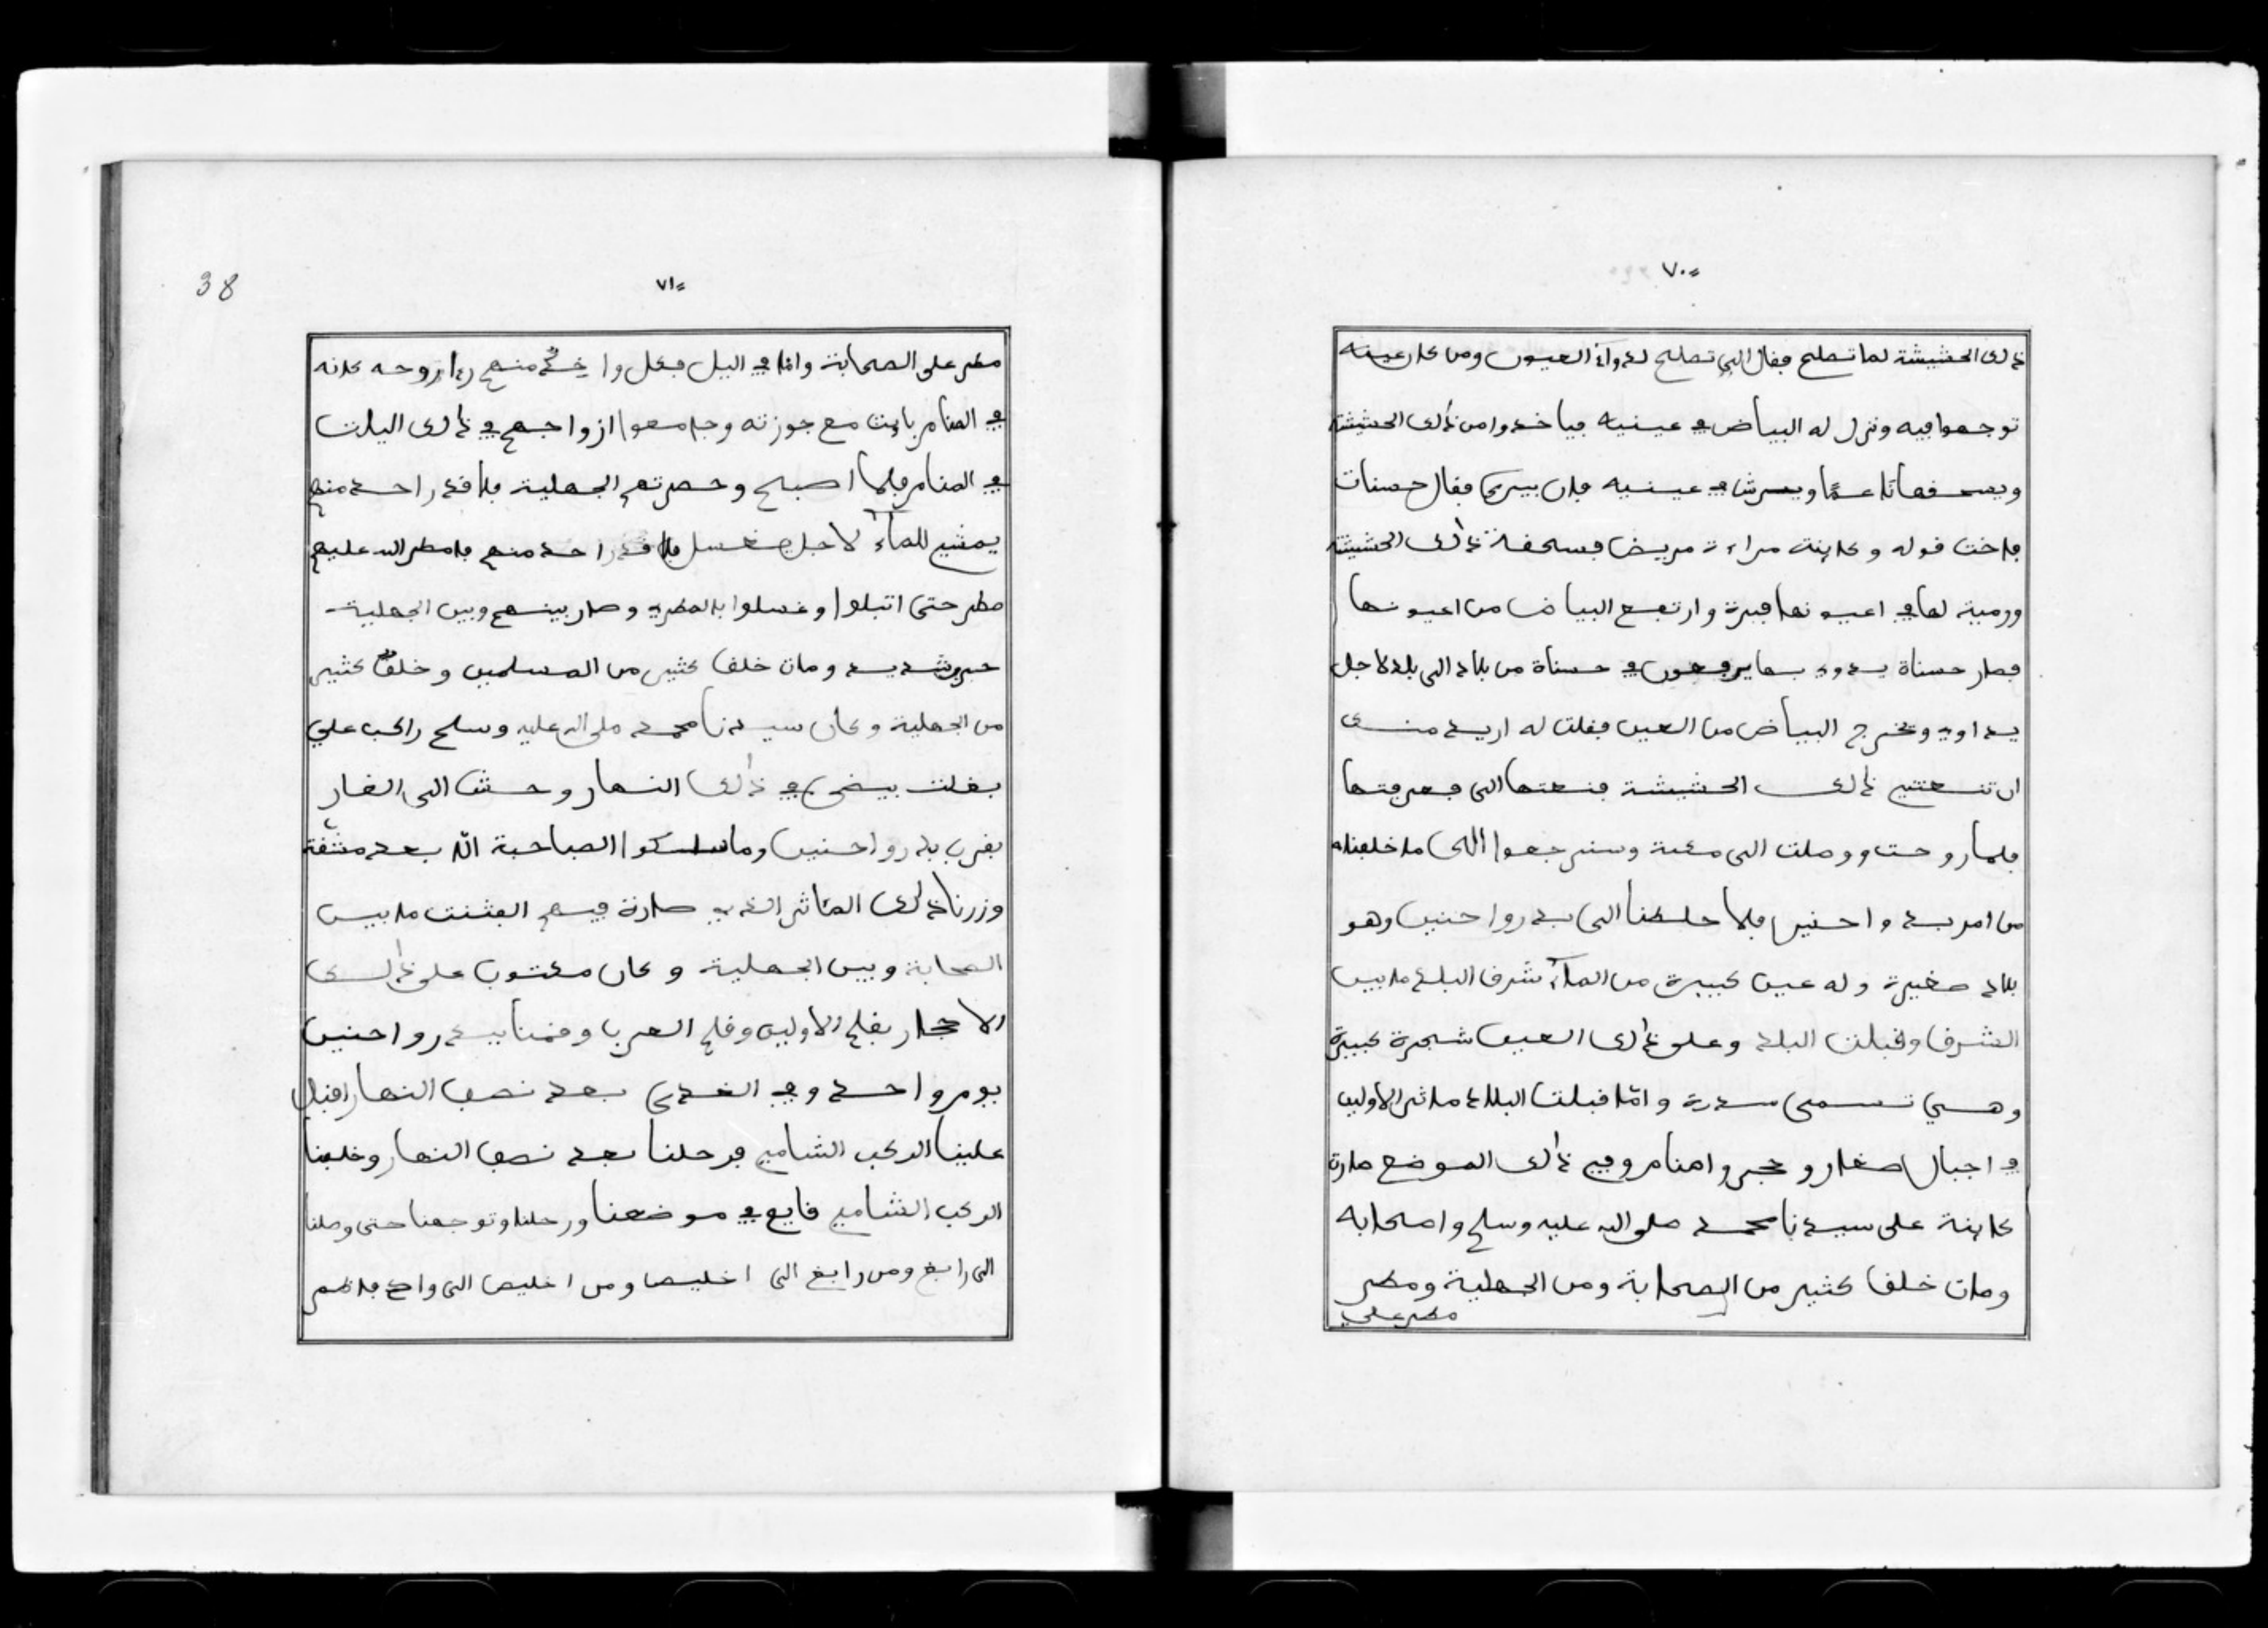 ٧٠
ذلك الحشيشة لما تصلح فقال الي تصلح لدوآء العيون ومن كان عينه
توجعوا فيه ونزل له البياض في عينيه فياخدوا من ذالك الحشيشة
ويسحفها ناعمًا ويرش في عينيه فان يبرى فقال حسنات
فاخت قوله وكاينة مراءة مريض فسحقة ذالك الحشيشة
ورمية لها في اعيونها فبرة وارتفع البياض من اعيونها
فصار حسناة يدوي بها يرفعون في حسناة من بلاد الى بلد لاجل
يداوي وتخرج البياض من العين فقلت له اريد منك
ان تنعتني ذالك الحشيشة فنعتها الي فعرفتها
فلما روحت ووصلت الى مكة وسنرجعوا الى ما خلفناه
من امر بدر واحنين فلما حلطنا الى بدر واحنين وهو
بلاد صغيرة وله عين كبيرة من المآء شرق البلد ما بين
الشرق وقبلت البلد وعلى ذالك العين شجرة كبيرة
وهي تسمى سدرة وامّا قبلت البلاد ماثر الاولين
في اجبال صغار وحجر وامنام وفي ذالك الموضع صارة
كاينة على سيدنا محمد صلى الله عليه وسلم واصحابه
ومات خلف كثير من الصحابة ومن الجهلية ومطر
مطر على
٧١
38
مطر على الصحابة وامّا في اليل فكل واحد منهم رءا روحه كانه
في المنام باءت مع جوزته وجامعوا ازواجهم في ذالك اليلت
في المنام فلما اصبح وحصرتهم الجهلية فلا قدر احد منهم
يمشي للمآء لاجل يغسل فلا قدر احد منهم فامطر الله عليهم
مطر حتى اتبلوا وغسلوا بالمطر وصار بينهم وبين الجهلية
حرب شديد ومات خلف كثير من المسلمين وخلف كثير
من الجهلية وكان سيدنا محمد صلى الله عليه وسلم راكب علي
بغلت بيضى في ذالك النهار وحش الى الغار
بقرب بدر واحنين وما سلكوا الصاحبة الّا بعد مشقة
وزرنا ذالك الماثر الذي صارة فيهم الفتنت ما بين
الصحابة وبين الجهلية وكان مكتوب على ذالك
الاحجار بقلم الاولين وقلم العرب وقمنا ببدر واحنين
يوم واحد وفي الغدى بعد نصف النهار اقبل
علينا الركب الشامي فرحلنا بعد نصف النهار وخلفنا
الركب الشامي قايم في موضعنا ورحلنا وتوجهنا حتى وصلنا
الى رابغ ومن رابغ الى اخليص ومن اخليص الى واد فاطم